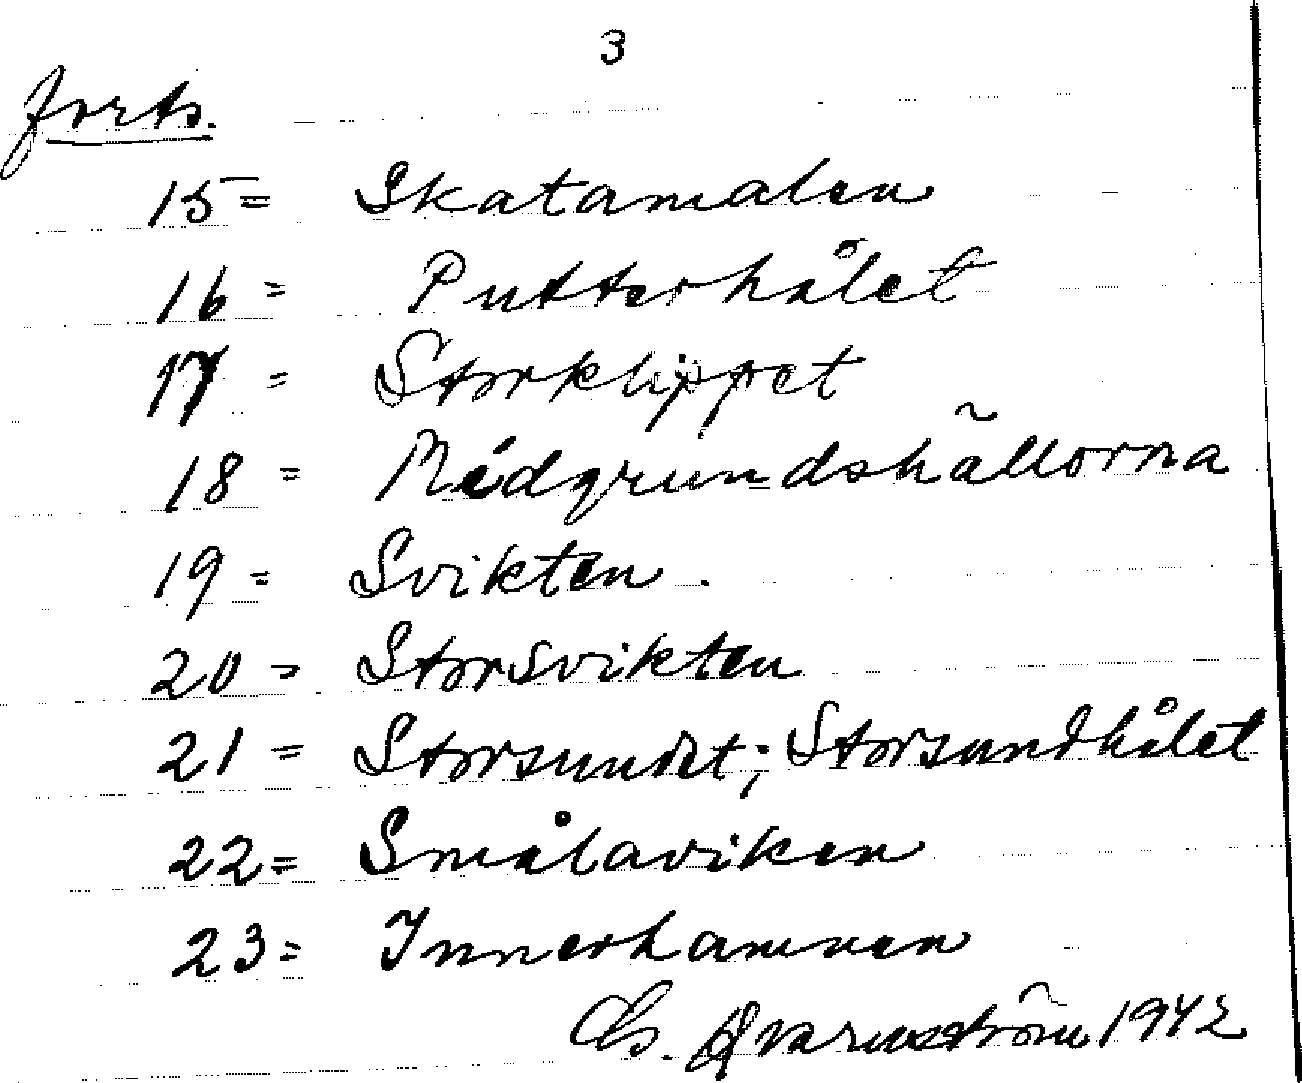 3
forts.
15 = Skatamalen
16 = Putterhålet
17 = Storklippet
18 = Medgrundshällorna
19 = Svikten.
20 = Storsvikten
21 = Storsundet; Storsundhålet
22 = Smålaviken
23 = Innerhamnen
Qvarnström 1942